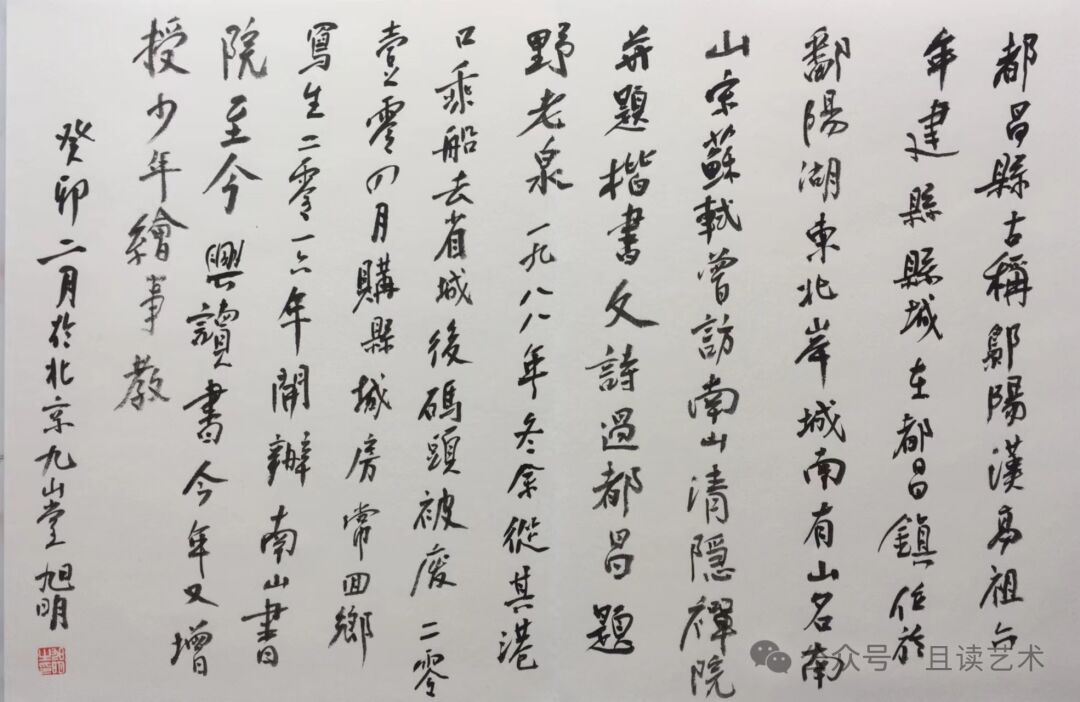 都昌縣古稱鄡陽漢高祖六
年建縣縣城在都昌鎮位於
鄱陽湖東北岸城南有山名南
山宋蘇軾曾訪南山清隱禪院
并題楷書又詩過都昌題
野老泉一九八八年冬余從其港
口乘船去省城後碼頭被廢二零
壹零四月購縣城房常回鄉
寫生二零一六年開辦南山書
院至今興讀書今年又增
授少年繪事教
癸卯二月於北京九山堂旭明
公众号·且读艺术